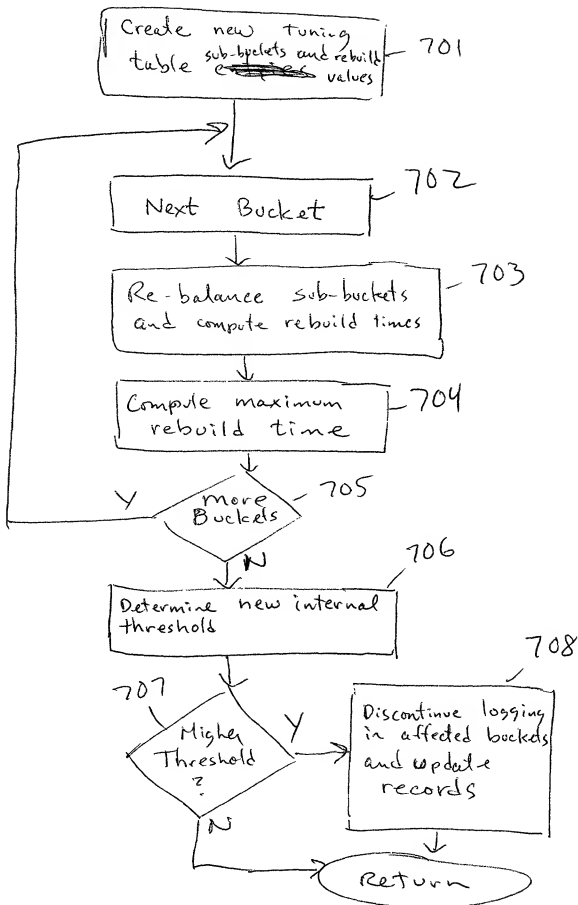 Create new tuning
sub-buckets and rebuild
table values
701
702
Next Bucket
703
Re-balance sub-buckets
and compute rebuild times
704
Compute maximum
rebuild time
705
Y
more
Buckets
N
706
Determine new internal
threshold
708
707
Higher
Threshold
?
Y
N
Discontinue logging
in affected buckets
and update
records
Return